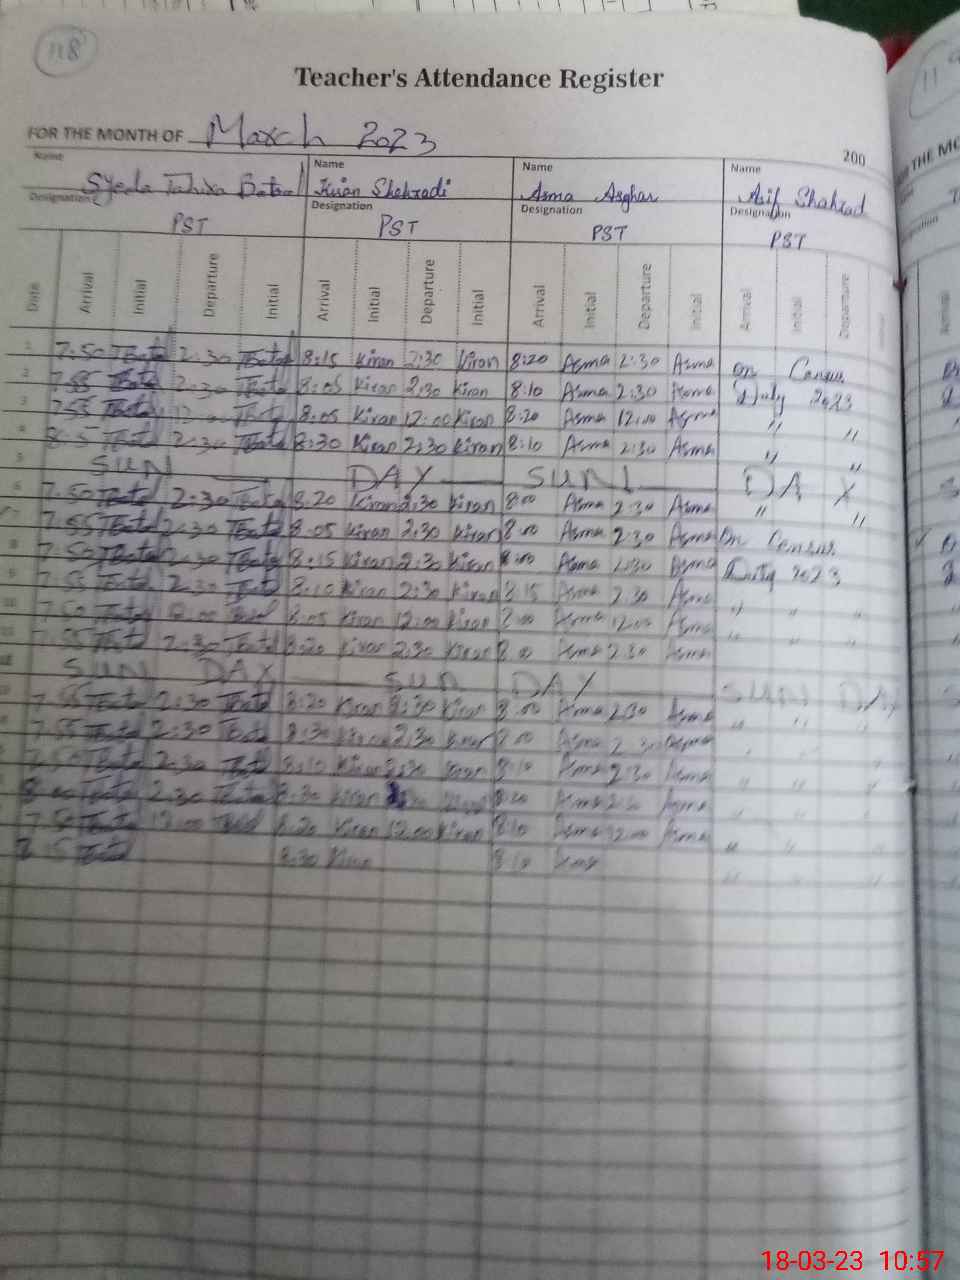 118
Teacher's Attendance Register
FOR THE MONTH OF March 2023
200
Name Name Name Name
Syeda Tahira Batool Kiran Shehzadi Asma Asghar Asif Shahzad
Designation Designation Designation Designation
PST PST PST PST
Date Arrival Initial Departure Initial Arrival Initial Departure Initial Arrival Initial Departure Initial Arrival Initial Departure
1 7:50 TBatol 2:30 TBatol 8:15 Kiran 2:30 Kiran 8:20 Asma 2:30 Asma On Census
2 7:55 TBatol 2:30 TBatol 8:05 Kiran 2:30 Kiran 8:10 Asma 2:30 Asma Duty 2023
3 7:55 TBatol 12:00 TBatol 8:05 Kiran 12:00 Kiran 8:20 Asma 12:00 Asma " "
4 8:5 TBatol 2:30 TBatol 8:30 Kiran 2:30 Kiran 8:10 Asma 2:30 Asma " "
5 SUN DAY SUN DAY
6 7:50 TBatol 2:30 TBatol 8:20 Kiran 2:30 Kiran 8:00 Asma 2:30 Asma " "
7 7:55 TBatol 2:30 TBatol 8:05 Kiran 2:30 Kiran 8:00 Asma 2:30 Asma On Census
8 7:50 TBatol 2:30 TBatol 8:15 Kiran 2:30 Kiran 8:00 Asma 2:30 Asma Duty 2023
9 7:55 TBatol 2:30 TBatol 8:10 Kiran 2:30 Kiran 8:15 Asma 2:30 Asma " " "
10 7:50 TBatol 12:00 8:05 Kiran 12:00 Kiran 8:00 Asma 12:00 Asma " " "
11 7:55 TBatol 2:30 TBatol 8:20 Kiran 2:30 Kiran 8:00 Asma 2:30 Asma
12 SUN DAY SUN DAY SUN DAY
7:55 TBatol 2:30 TBatol 8:20 Kiran 2:30 Kiran 8:00 Asma 2:30 Asma " " "
7:55 TBatol 2:30 TBatol 8:30 Kiran 2:30 Kiran 8:00 Asma 2:30 Asma
7:50 TBatol 2:30 TBatol 8:10 Kiran 2:30 Kiran 8:10 Asma 2:30 Asma " " "
8:00 TBatol 2:30 TBatol 8:30 Kiran Asma Asma " " "
7:50 TBatol 12:00 8:20 Kiran 12:00 Kiran 8:10 Asma 12:00 Asma " " "
8:30 Kiran 8:10 Asma " " "
18-03-23 10:57